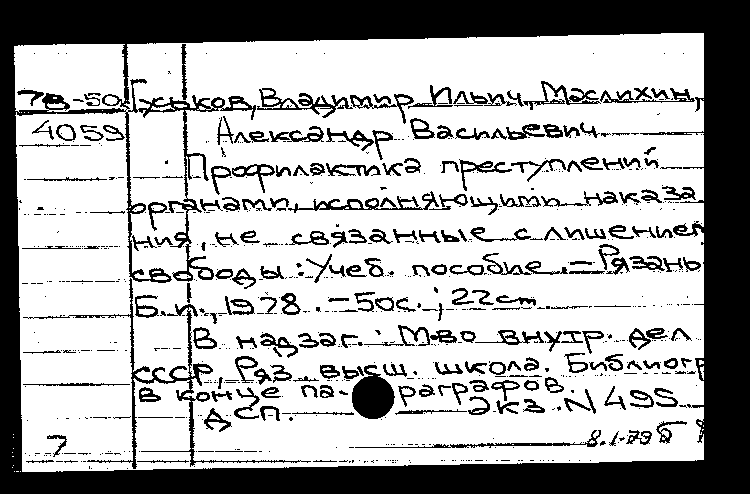 78-50 Гуськов, Владимир Ильич, Маслихин,
4059 Александр Васильевич.
Профилактика преступлений
органами, исполняющими наказа
ния, не связанные с лишением
свободы: Учеб. пособие. — Рязань
Б.и., 1978. — 50с.; 22см.
В надзаг.: М-во внутр. дел
СССР, Ряз. высш. школа. Библиогр
в конце па- раграфов.
ДСП. Экз. N 495
7 8.1-79